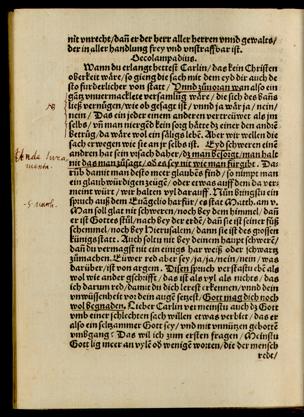 nit vnrecht/ dañ er der herr aller herren vnnd gewalts/
der in aller handlung frey vnd vnstraffbar ist.
Oecolampadius.
Wann du erlangt hettest Carlin/ das kein Christen
oberkeit wäre/ so gieng die sach mit dem eyd dir auch de
sto fürderlicher von statt/ Vnnd züuoran wan also ein
gätz vnuermackelte versamlūg wäre/ die sich des banß
ließ vernügen/ wie ob gesagt ist/ ynnd ja wär ja/ nein/
nein/ Das ein jeder einem anderen vertreüwer als jm
selbs/ vñ man niergēd kein sorg hätte dz einer den andrē
betrüg/ da wäre wol ein säligs lebē. Aber wir wellen die
sach erwegen wie sie an jr selbs ist. Eyd schweren einē
andren hat sein visach daher/ dz man besorget/ man halt
nit das man zusage/ od es sey nit wie man fürgibt. Da-
rūb damit man desto meer glaubēs find/ so nimpt man
ein glaubwürdigen zeüge/ oder etwas auff den da ver-
meint würt/ wir halten vyl darauff. Nūn bringstu ein
spruch auß dem Euāgelio harfür/ es stat Matth. am v.
Man soll glat nit schweren/ noch bey dem himel/ dañ
er ist Gottes stūl/ noch bey der erdē/ dañ sie ist seiner füß
schemmel/ noch bey Hierusalem/ dann sie ist des grossen
künigs statt. Auch soltu nit bey deinem haupt schwerē/
dañ du vermagst nit ein einigs har weiß oder schwartz
zümachen. Eüwer red aber sey/ ja/ ja/ nein/ nein/ was
darüber/ ist von argem. Disen spruch verstastu die als
wol wie ander gschrifft/ das ist als vyl als nichts/ das
ich darum red/ damit du dich lerest erkennen/ vnnd dein
vnwüssenheit vor dein augē setzest. Gott mag dich noch
wol begnaden. Lieber Carlin vermeinstu auch dz Gott
vmb einer schlechten sach willen etwas verbiet/ das er
also ein seltzammer Gott sey/ vnd mit vnnützen gebottē
vmbgang: Das wil ich zum ersten fragen/ Meinstu
Gott lig meer an vylē od wenigē worten/ die der mensch
redt/